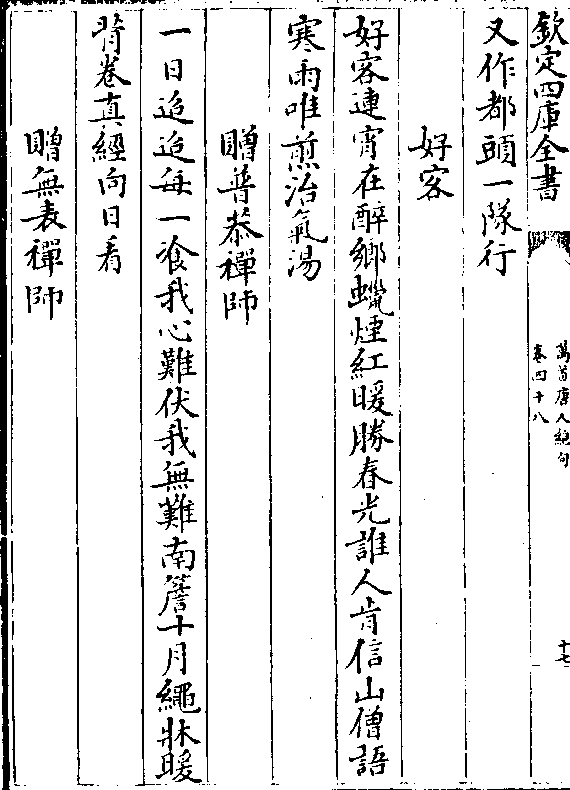 欽定四庫全書
萬首唐人絕句
卷四十八
十七
又作都頭一隊行
好客
好客連宵在醉鄉蠟煙紅暖勝春光誰人肯信山僧語
寒雨唯煎治氣湯
贈普恭禪師
一日迢迢每一飡我心難伏我無難南簷十月繩牀暖
背卷真經向日看
贈無表禪師